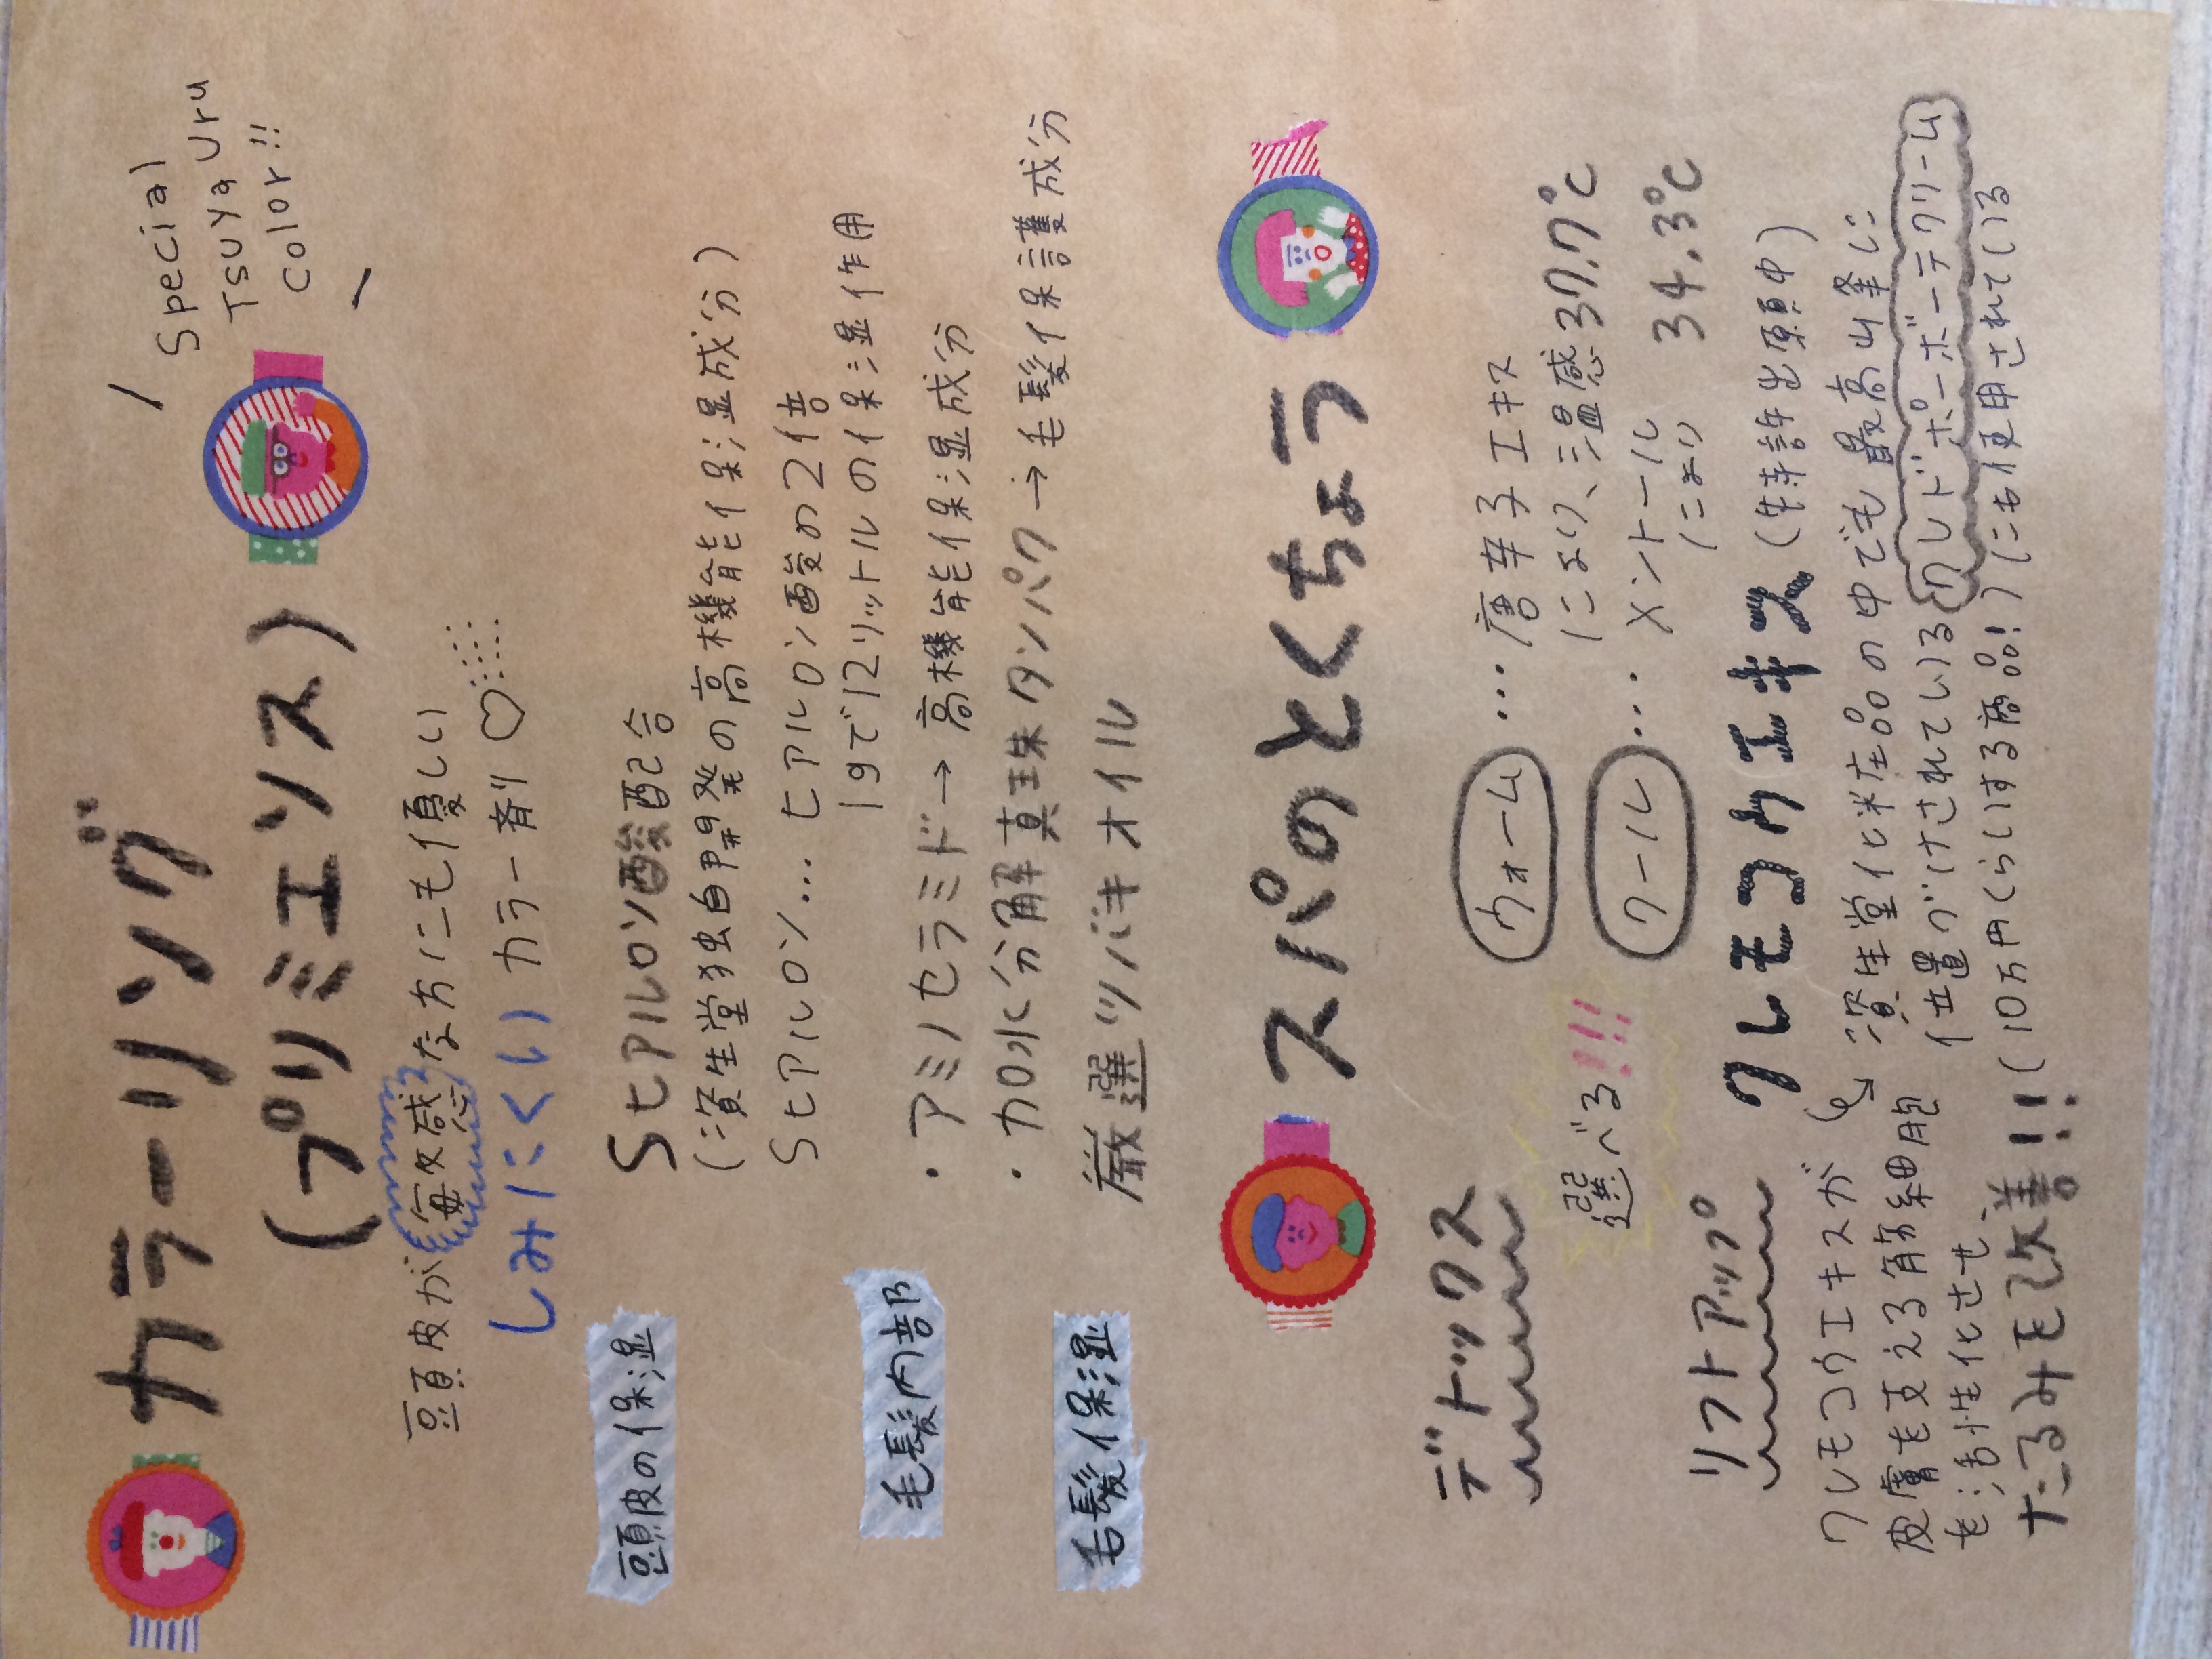 カラーリング
(プリミエンス)
Special
Tsuya Uru
Color!!
頭皮が敏感な方にも優しい
しみにくいカラー剤♡
頭皮の保湿
Sヒアルロン酸配合
(資生堂独自開発の高機能保湿成分)
Sヒアルロン… ヒアルロン酸の2倍
1gで12リットルの保湿作用
毛髪内部
・アミノセラミド→高機能保湿成分
・加水分解真珠タンパク→毛髪保護成分
毛髪保湿
厳選ツバキオイル
スパのとくちょう
デトックス
選べる!!!
ウォーム …唐辛子エキス
により、温感37.7℃
クール …メントール
により 34.3℃
リフトアップ
クレモコウエキス(特許出願中)
資生堂化粧品の中でも最高峰に
位置づけされているクレドポーボーテクリーム
(10万円くらいする商品!)にも使用されている
クレモコウエキスが
皮膚を支える筋細胞
を活性化させ、
たるみを改善!!